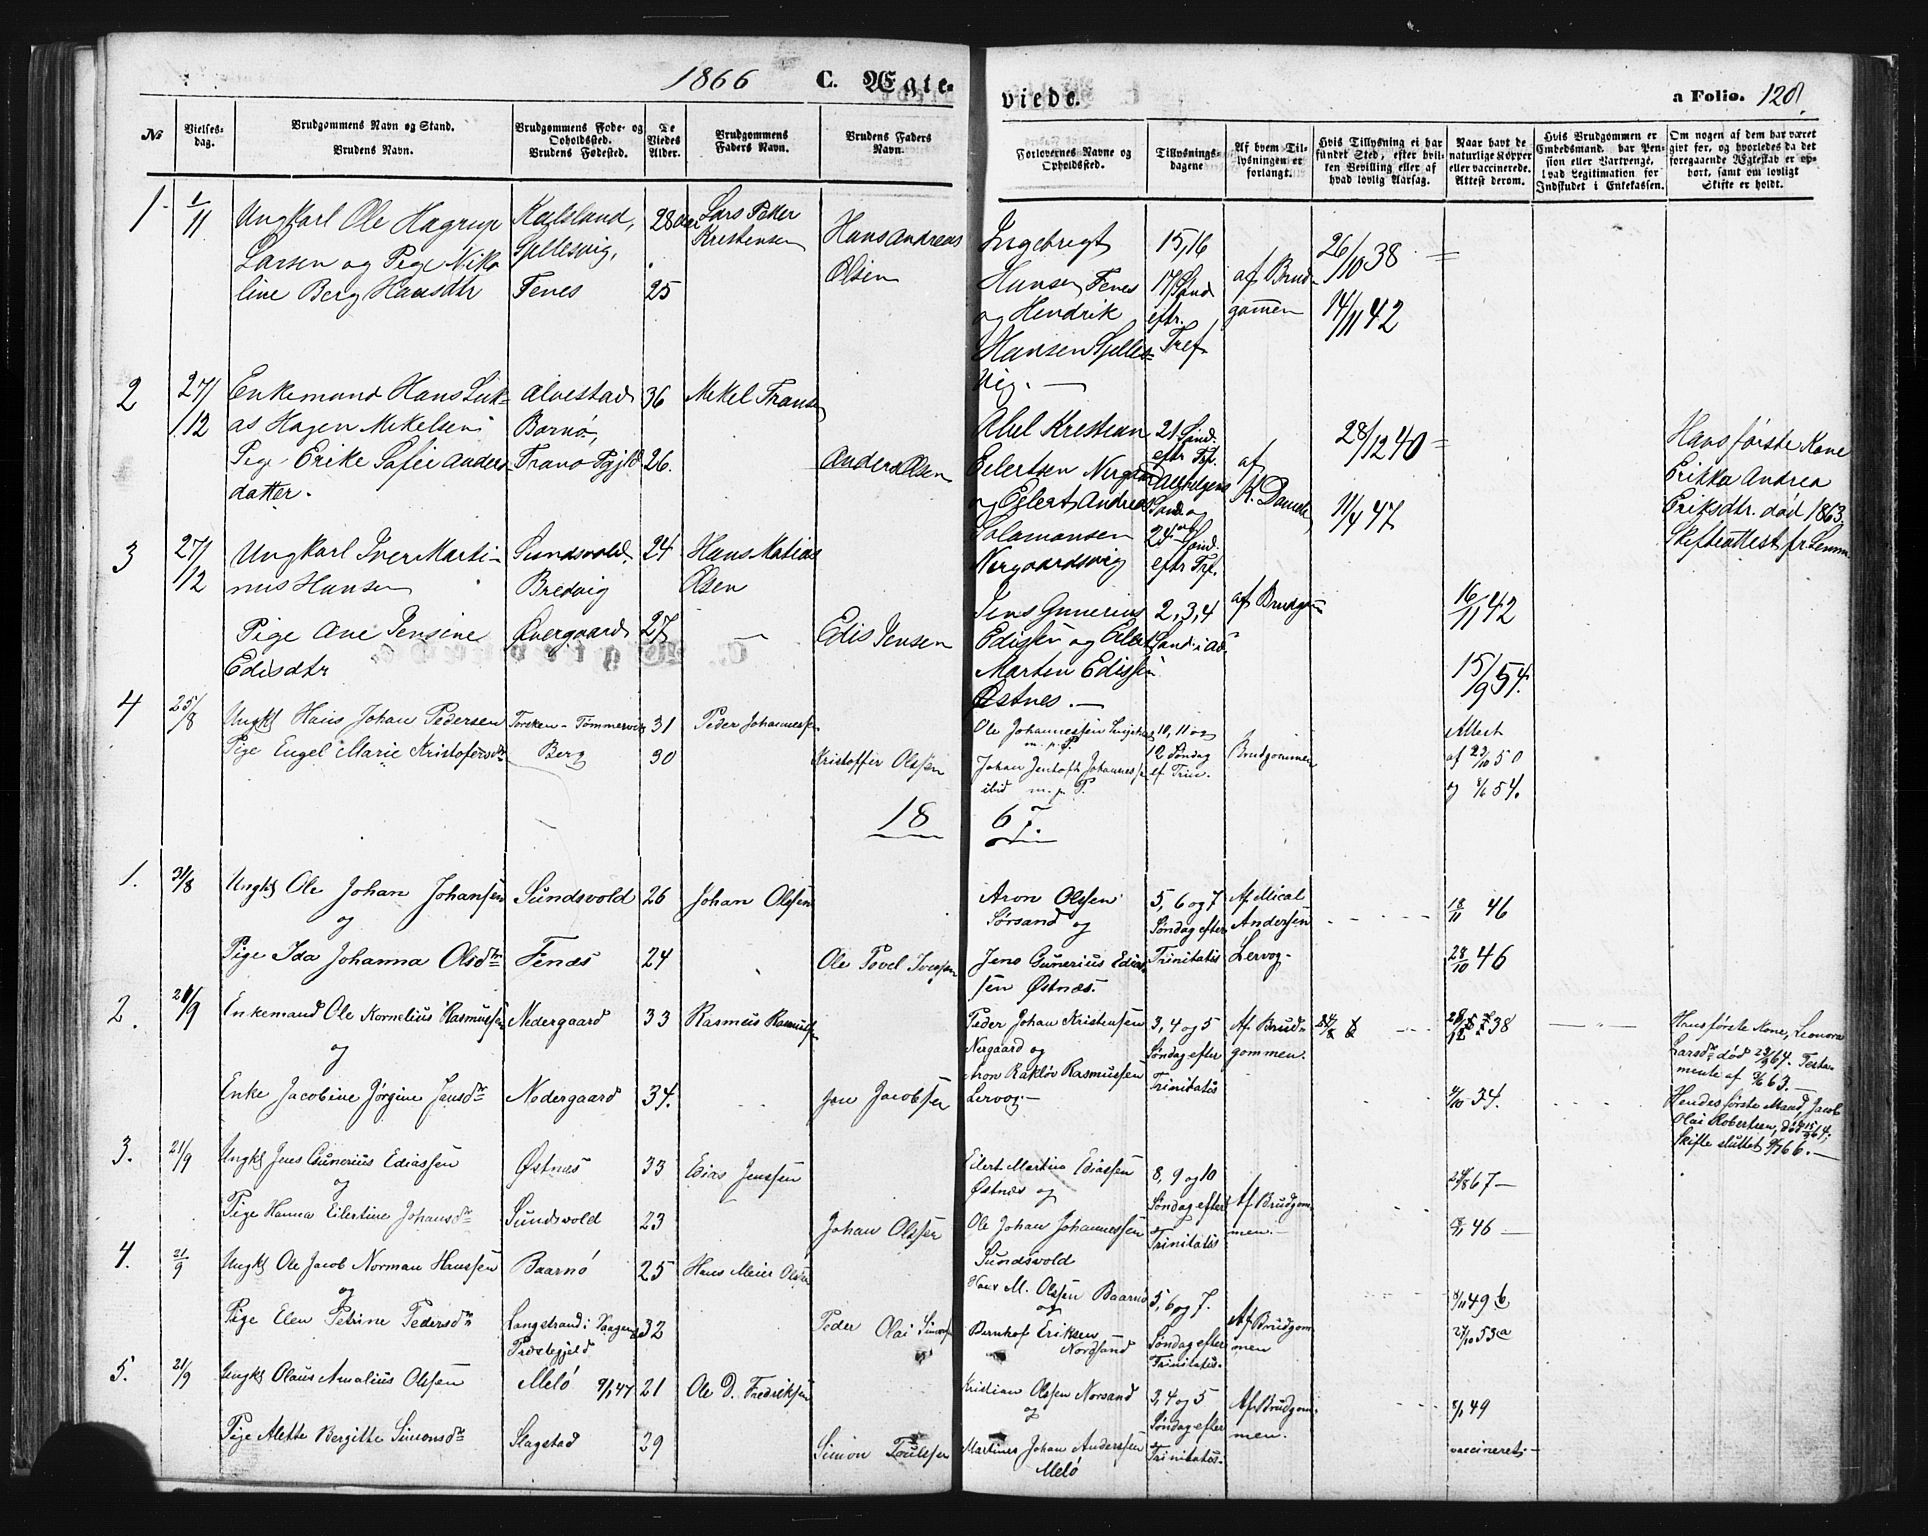 1866 C. Ægte-
viede.
a Folio. 120
No
Vielses-
dag.
Brudgommens Navn og Stand.
Brudens Navn.
Brudgommens Føde- og
Opholdssted.
Brudens Fødested.
De
Viedes
Alder.
Brudgommens
Faders Navn.
Brudens Faders
Navn.
Forlovernes Navne og
Opholdssted.
Tillysnings-
dagene.
Af hvem Til-
lysningen er
forlangt.
Hvis Tillysning ei har
fundet Sted, efter hvil-
ken Bevilling eller af
hvad lovlig Aarsag.
Naar havt de
naturlige Kopper
eller vaccinerede.
Attest derom.
Hvis Brudgommen er
Embedsmand, har Pen-
sion eller Vartpenge,
hvad Legitimation for
Indskudet i Enkekassen.
Om nogen af dem har været
gift før, og hvorledes da det
foregaaende Ægteskab er op-
hørt, samt om lovligt
Skifte er holdt.
1 1/11 Ungkarl Ole Hagrup
Larsen og Pige Niko
line Berg Hansdtr
Kalsland,
Gyllesvig,
Fenes
28
25
Lars Peter
Kristensen
Hans Andreas
Olsen
Ingebrigt
Hansen Fenes
og Hendrik
Hansen Gylles-
vig.
15, 16
17 Sønd
eftr.
Tref
af Brud-
gommen
26/10 38
14/11 42
2 27/12 Enkemand Hans Luk-
as Hagen Mikelsen
Pige Erike Safei Anders
datter.
Alvestad
Barnø,
Tranø Pgjld
36
26.
Mekel Fransen
Anders Olsen
Abel Krestean
Eilertsen Nergaard
og Eilert Andreas
Solamonsen
Nergaardsvig
21 Sønd.
eftr Trf.
Allehelgens
Sønd og
24 Sønd.
eftr Trf.
af
K. Daniels
28/12 40
11/4 47
Hans første Kone
Erikka Andrea
Eriksdtr. død 1863.
Skifteattest fr. Lensm.
3 27/12 Ungkarl Iver Marti-
nus Hansen
Pige Ane Jensine
Edisdtr
Sundsvold.
Bredvig
Øvergaard
24
27
Hans Matias
Olsen
Edis Jensen
Jens Gunerius
Edissen og Eilert
Marten Edissen
Østnes.
2, 3, 4
Sønd i Ad.
af Brudgom
16/11 42
15/9 54.
4 25/8 Ungk. Hans Johan Pedersen
Pige Engel Marie Kristofersdtr
Torsken - Tømmervig
Berg
31
30
Peder Johannessen
Kristoffer Olssen
Ole Johannessen
m. p. P.
Johan Jentoft Johannessen
ibid m. p. P.
10, 11 og
12 Søndag
ef Trin.
Brudgommen
Attest
af 22/10 50
og 8/6 54.
18 67.
1. 31/8 Ungk. Ole Johan Johansen
og
Pige Ida Johanna Olsdtr
Sundsvold
Fenæs
26
24
Johan Olssen
Ole Povel Iversen
Aron Olssen
Sørsand og
Jens Gunerius Edias-
sen Østnæs.
5, 6 og 7
Søndag efter
Trinitatis
Af Mical
Andersen
Lervog-
18/11 46
28/10 46
2. 21/9 Enkemand Ole Kornelius Rasmussen
og
Enke Jacobine Jørgine Jansdtr
Nedergaard
Nedergaard
33
34.
Rasmus Rasmussen
Jan Jacobsen
Peder Johan Kristensen
Nergaard og
Aron Rakløv Rasmussen
Lervog-
3, 4 og 5
Søndag efter
Trinitatis
Af Brud-
gommen.
38
9/10 34.
Hans første Kone, Leonora
Larsdtr død 22/9 64. Testa-
mente af 63.
Hendes første Mand, Jacob
Olai Robertsen, død 15/3 64.
Skifte sluttet 66.
3. 21/9 Ungk. Jens Gunerius Ediassen
og
Pige Hanna Eilertine Johansdtr
Østnæs
Sundsvold
33
23
Edias Jenssen
Johan Olssen
Eilert Martin Ediassen
Østnæs og
Ole Johan Johannessen
Sundsvold
8, 9 og 10
Søndag efter
Trinitatis
Af Brudgom-
men.
24/8 67
46
4. 21/9 Ungk. Ole Jacob Norman Hanssen
og
Pige Elen Petrine Pedersdtr
Baarnø
Langstrand i Vaagens
Præstegjeld
25
32
Hans Meier Olsen
Peder Olai Simonsen
Hans M. Olssen Baarnø
og
Bernhof Eriksen
Nordsand
5, 6 og 7.
Søndag efter
Trinitatis.
Af Brudgom-
men
8/11 49 b
27/10 53 a
5. 21/9 Ungk. Olaus Amalius Olssen
Pige Alette Bergitte Simonsdtr
Melø 9/1 47
Slagstad
21
39
Ole D. Fredriksen
Simon Poulssen
Kristian Olssen Norsand
og
Martines Johan Anderssen
Melø
3, 4 og 5
Søndag efter
Trinitatis.
Af Brudgom-
men.
49
vaccineret